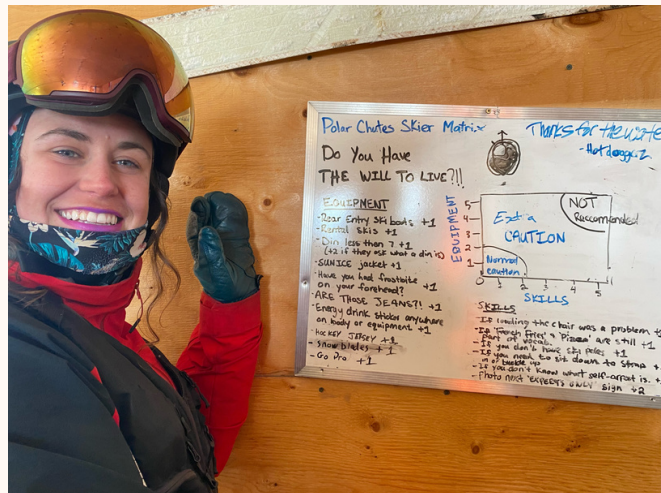 Polar Chutes Skier Matrix
Thanks for the
Do You Have
THE WILL TO LIVE?!!
EQUIPMENT
-Rear Entry Ski boots +1
-Rental Skis +1
-Din less than 7 +1
(+2 if they ask what a din is)
-SUNICE jacket +1
-Have you had frostbite
on your forehead?
-ARE THOSE JEANS?! +1
-Energy drink sticker anywhere
on body or equipment +1
-HOCKEY JERSEY +1
-Snow blades +1
-Go Pro +1
EQUIPMENT
5
4
3
2
1
NOT
Reccomended
Extra
CAUTION
Normal
caution
0 1 2 3 4 5
SKILLS
SKILLS
-If loading the chair was a problem
-If "French Fries" & "Pizza" are still +1
part of vocab.
-If you don't have ski poles +1
-If you need to sit down to strap
in or buckle up
-If you don't know what self-arrest is.
-Photo next "EXPERTS ONLY" sign +2